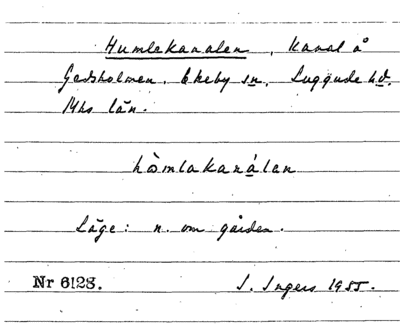 Humlekanalen, kanal å
Gedsholmen, Ekeby sn, Luggude hd.
Mhs län.
hòmlakanálen
Läge: n. om gården.
Nr 6128.
I. Ingers 1955.